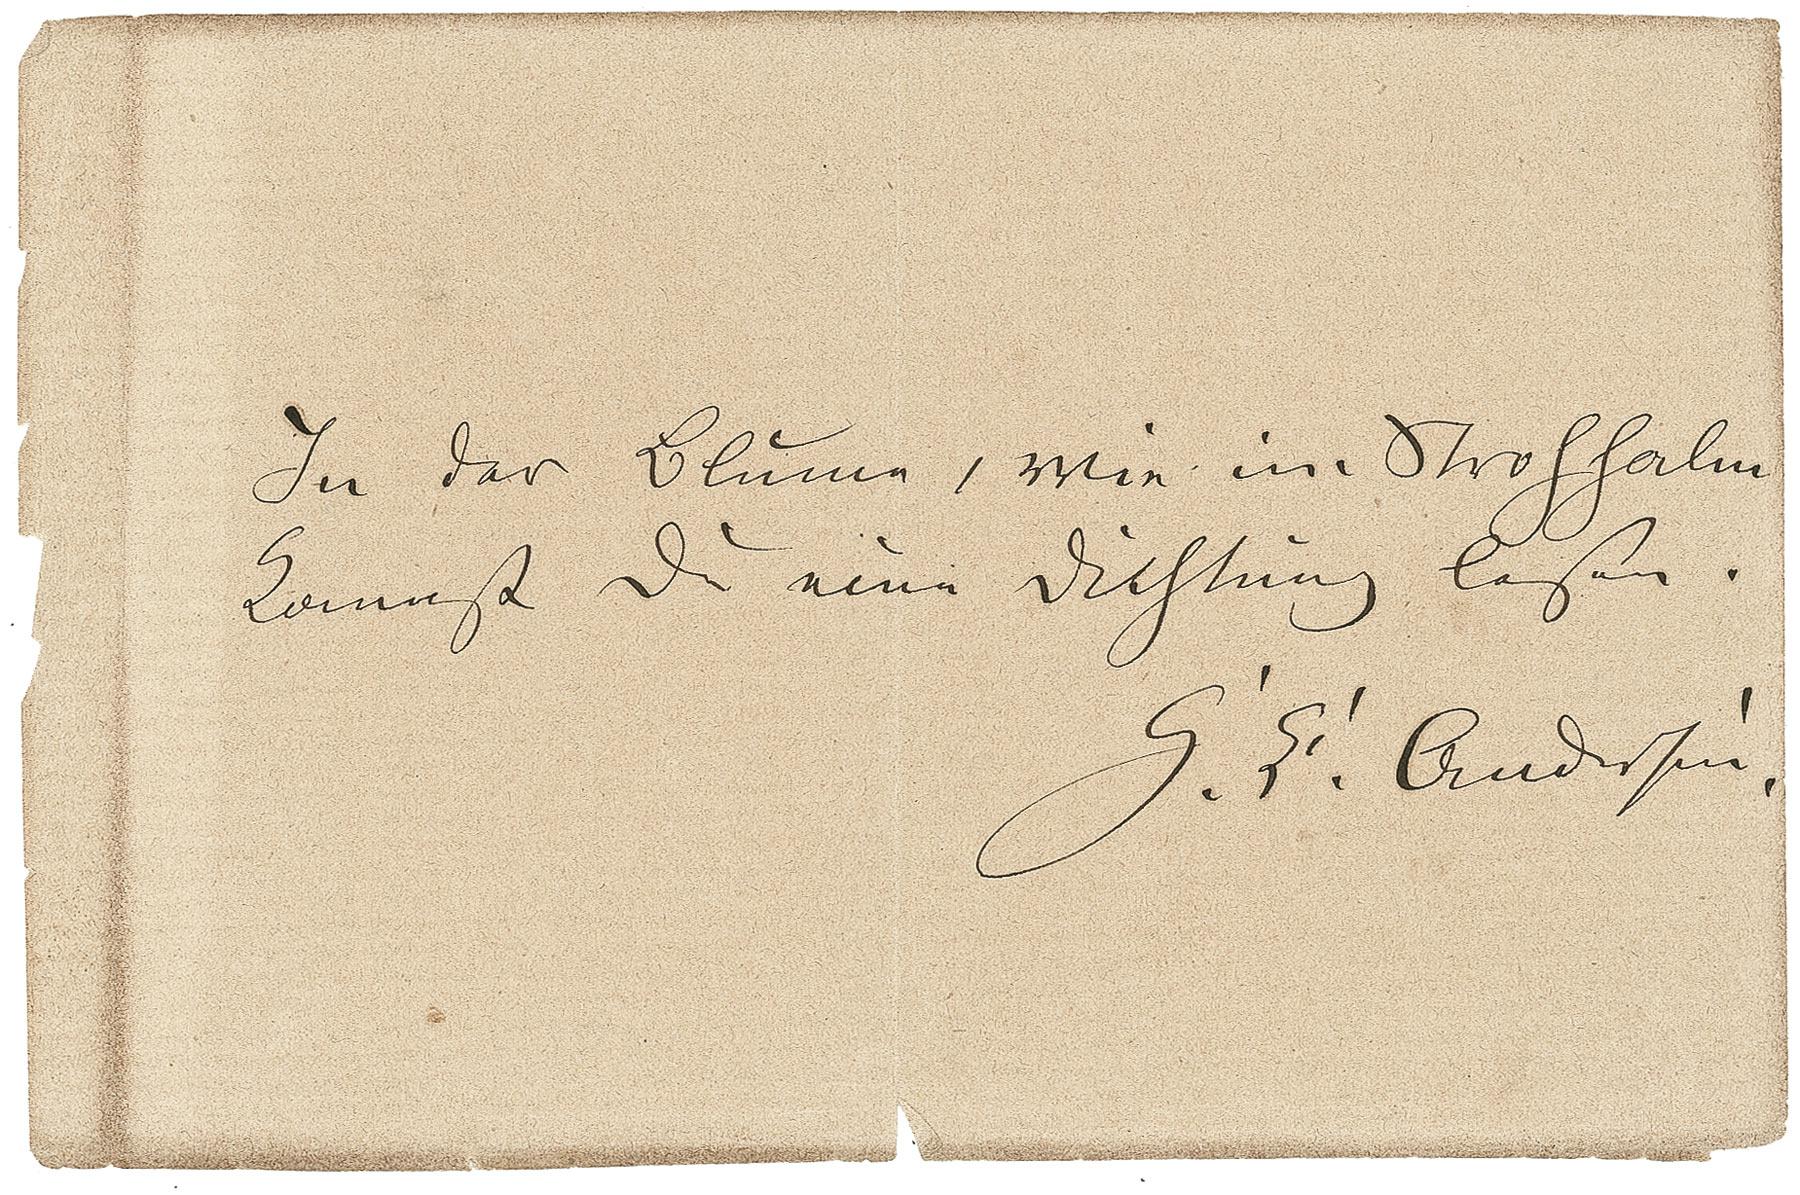 In der Blume, wie im Strohhalm
kannst Du eine Dichtung lesen.
H. C. Andersen.